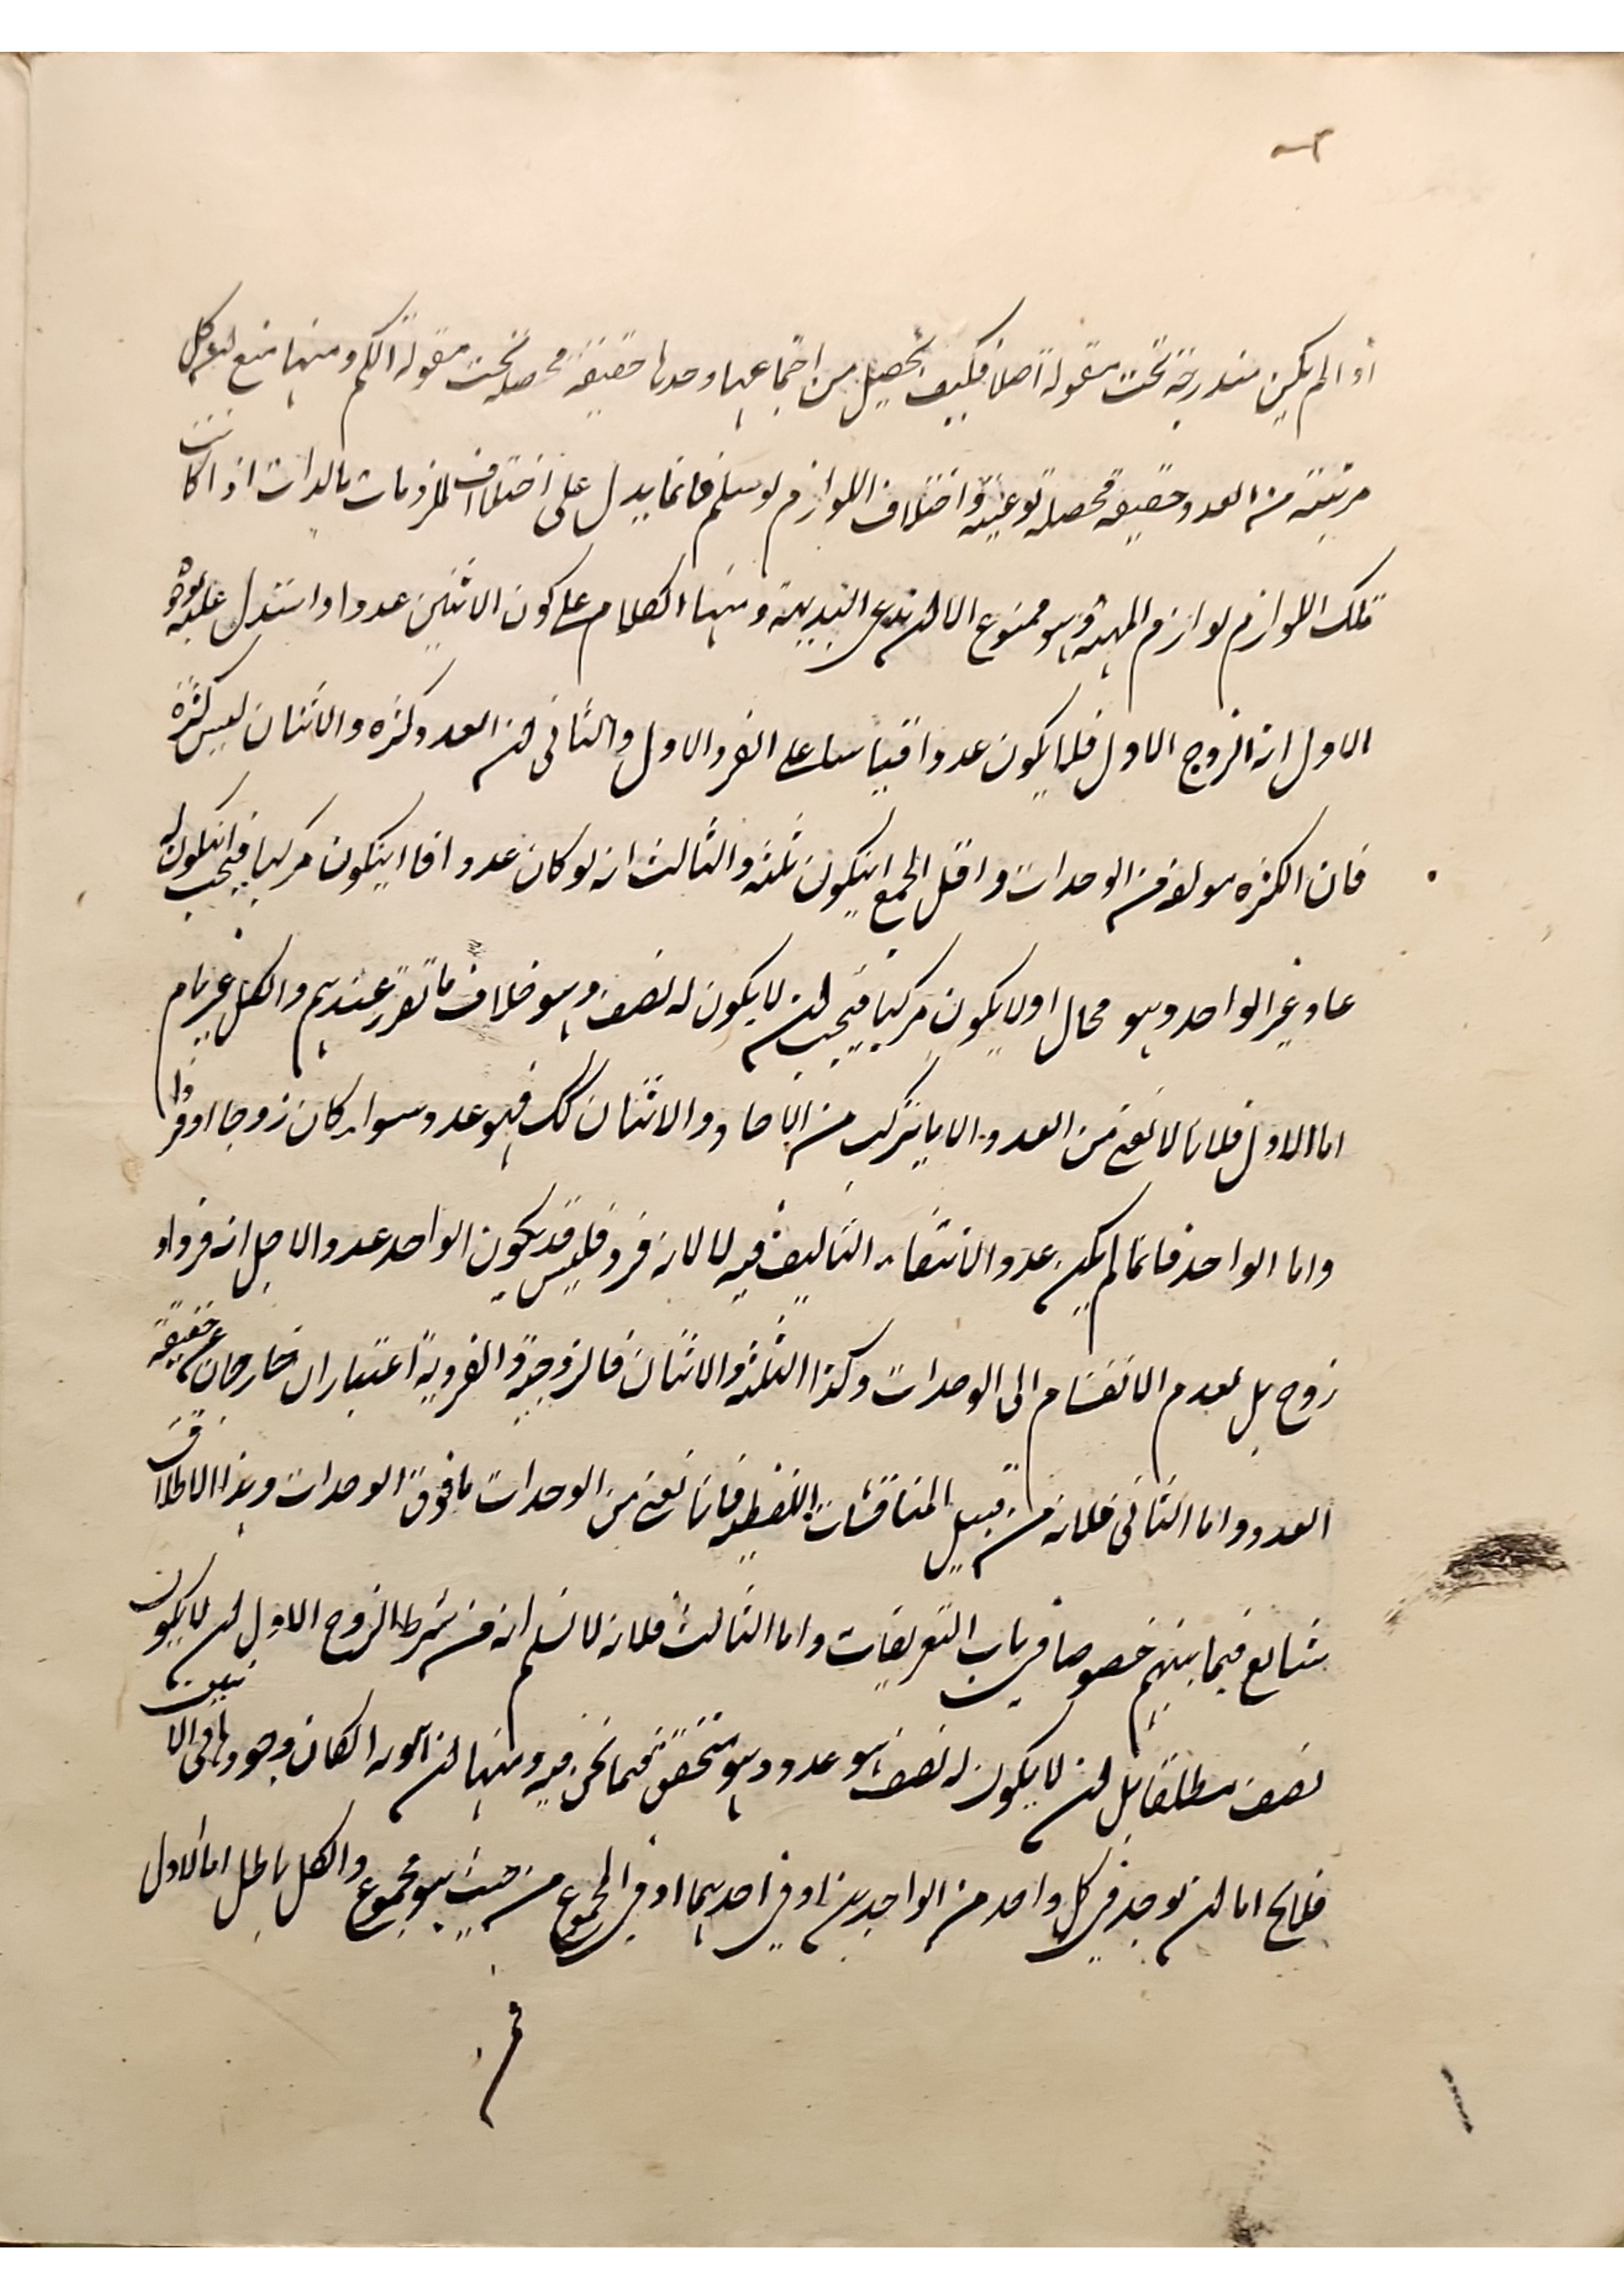 اذا لم يكن مندرجة تحت مقولة اصلا فكيف يحصل من اجتماعها وحدها حقيقة محصلة تحت مقولة الكم ومنها منع كون كل
مرتبة من العدد حقيقة محصلة نوعية واختلاف اللوازم لو سلم فانما يدل على اختلاف الملزومات بالذات اذا كانت
تلك اللوازم لوازم المهية وهو ممنوع الا ان يدعى البديهة ومنها الكلام على كون الاثنين عددا واستدل عليه بوجوه
الاول انه الزوج الاول فلا يكون عددا قياسا على الفرد الاول والثانى ان العدد كثرة والاثنان ليس كثرة
فان الكثرة مولفة من الوحدات واقل الجمع ان يكون ثلثة والثالث انه لو كان عددا فاما ان يكون مركبا فيجب ان يكون له
عاد غير الواحد وهو محال او لا يكون مركبا فيجب ان لا يكون له نصف وهو خلاف ما تقرر عندهم والكل غير تام
اما الاول فلانا لا نعنى من العدد الا ما يتركب من الآحاد والاثنان كك فهو عدد سواء كان زوجا او فردا
واما الواحد فانما لم يكن عددا لانتفاء التاليف فيه لا لانه فرد فليس قد يكون الواحد عددا لاجل انه فرد او
زوج بل لعدم الانقسام الى الوحدات وكذا الثلثة والاثنان فالزوجية والفردية اعتباران خارجان عن حقيقة
العدد واما الثانى فلانه من قبيل المناقشات اللفظية فانا نعنى من الوحدات ما فوق الوحدات وهذا الاطلاق
شايع فيما بينهم خصوصا فى باب التعريفات واما الثالث فلانه لا نسلم انه من شرط الزوج الاول ان لا يكون
نصف مطلقا بل ان لا يكون له نصف هو عدد وهو متحقق فيما نحن فيه ومنها ان لو كان وجودها فى الاثنين
فلا يخ اما ان توجد فى كل واحد من الواحدين او فى احدهما او فى المجموع من حيث هو مجموع والكل باطل اما الاول